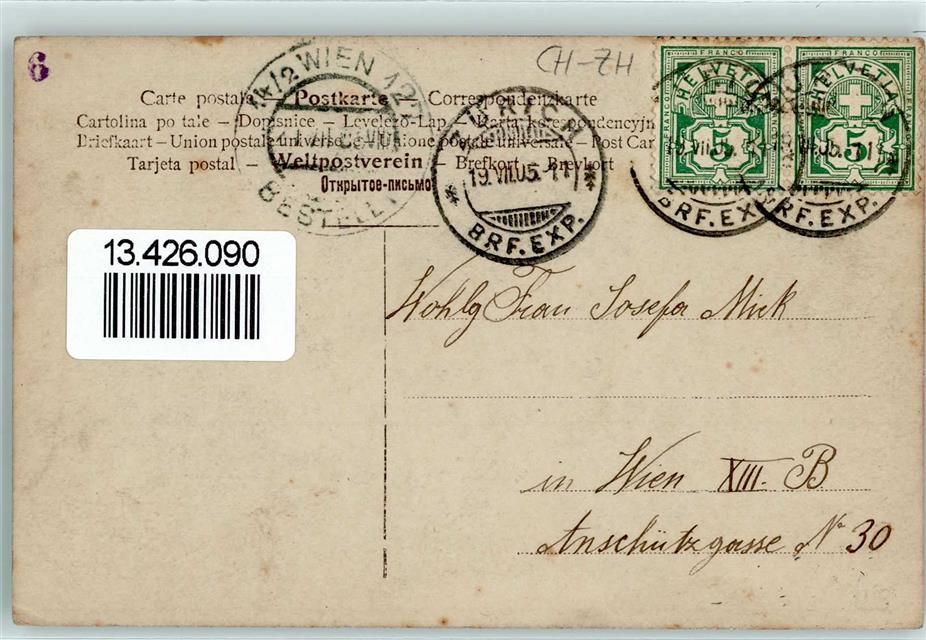 6
CH-ZH
Carte postale – Postkarte – Correspondenzkarte
Cartolina po tale – Dopisnice – Levelező-Lap – Karta korespondencyjn
Briefkaart – Union postale universelle – Unione postale universale – Post Car
Tarjeta postal – Weltpostverein – Brefkort – Brevkort
Открытое-письмо
WIEN 12
BESTELLT
ZÜRICH
19.VII.05. 11
BRF. EXP.
FRANCO
HELVETIA
5
BRF. EXP.
FRANCO
HELVETIA
5
BRF. EXP.
13.426.090
Wohlg Frau Josefa Mick
in Wien XIII. B
Anschützgasse No 30